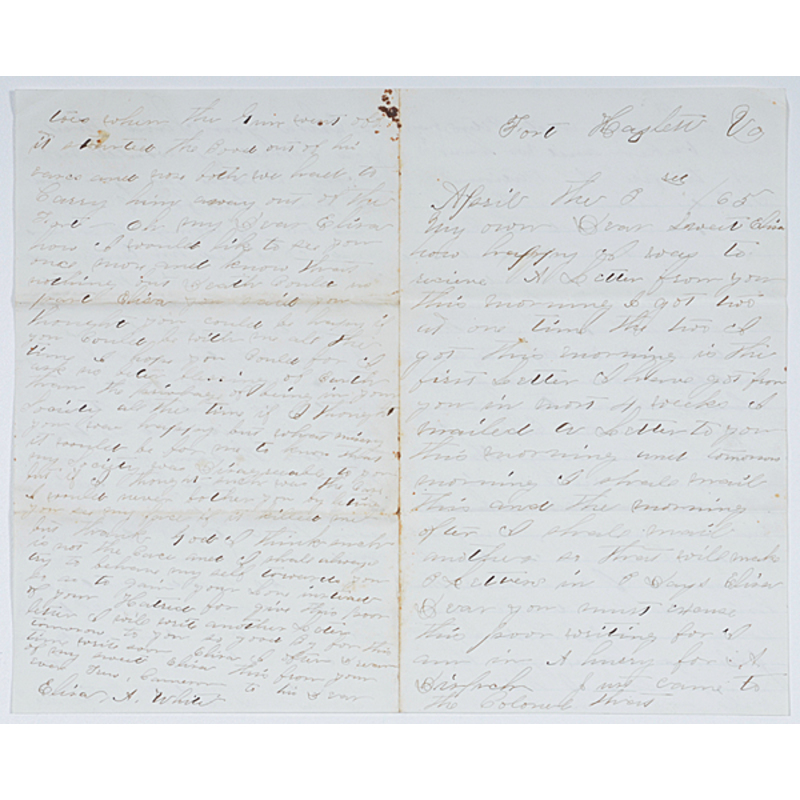 Fort Haslett Va
April the 3 /65
My own Dear Sweet Eliza
how happy I was to
recieve A Letter from you
this morning I got two
at one time the two I
got this morning is the
first Letter I have got from
you in most 4 weeks I
mailed a Letter to you
this morning and tomorrow
morning I shall mail
this and the morning
after I shall mail
another so that will make
3 Letters in 3 Days Eliza
Dear you must excuse
this poor writing for I
am in A hurry for A
Dispach Just came to
the Colonel that
when the Gun went of
it started the Blood out of his
ears and nose both we had to
Carry him away out of the
Fort Oh my Dear Eliza
how I would like to see you
once more and know that
nothing but Death Could us
part Eliza you said you
thought you could be happy if
you Could be with me all the
time I hope you Could for I
ask no other Blessing of Earth
than the of being in your
Society all the time if I thought
you was happy but what misery
it would be for me to know that
my Society was Disagreeable to you
but if I thought such was the Case
I would never bother you by letting
you see my face if it killed me
but thank God I think such
is not the Case and I shall always
try to behave my self towards you
so as to gain your Love instead
of your Hatred for give this poor
letter I will write another Letter
tomorrow to you so good By for this
time write soon Eliza
of my sweet Eliza this from your
ever True Cameron to his Dear
Eliza A. White